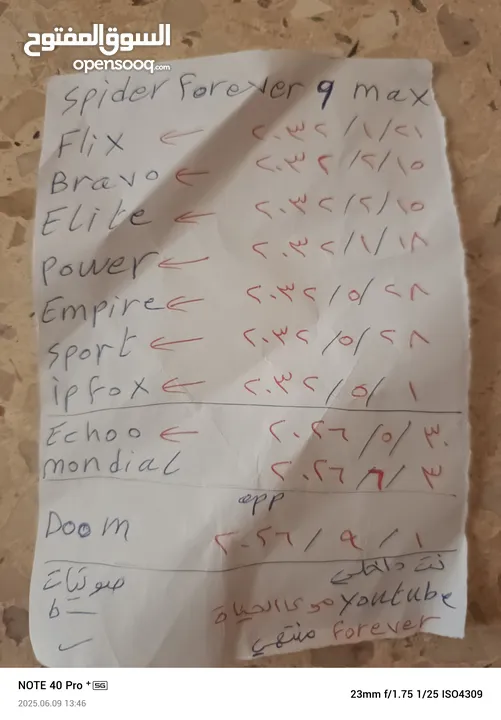 السوق المفتوح
opensooq.com
Spider Forever 9 max
Flix ← ٢٠٣٢/١/٢١
Bravo ← ٢٠٣٢/٢/١٥
Elite ← ٢٠٣٢/٢/١٥
Power ← ٢٠٣٢/١/١٨
Empire ← ٢٠٣٢/٥/٢٨
Sport ← ٢٠٣٢/٥/٢٨
ipfox ← ٢٠٣٢/٥/١
Echoo ← ٢٠٢٦/٥/٣٠
mondial ٢٠٢٦/٦/٣
app
Doom ٢٠٢٦/٩/١
صوتيات نت داخلي
مدى الحياة Youtube
منتهي Forever
NOTE 40 Pro+ 5G
2025.06.09 13:46
23mm f/1.75 1/25 ISO4309